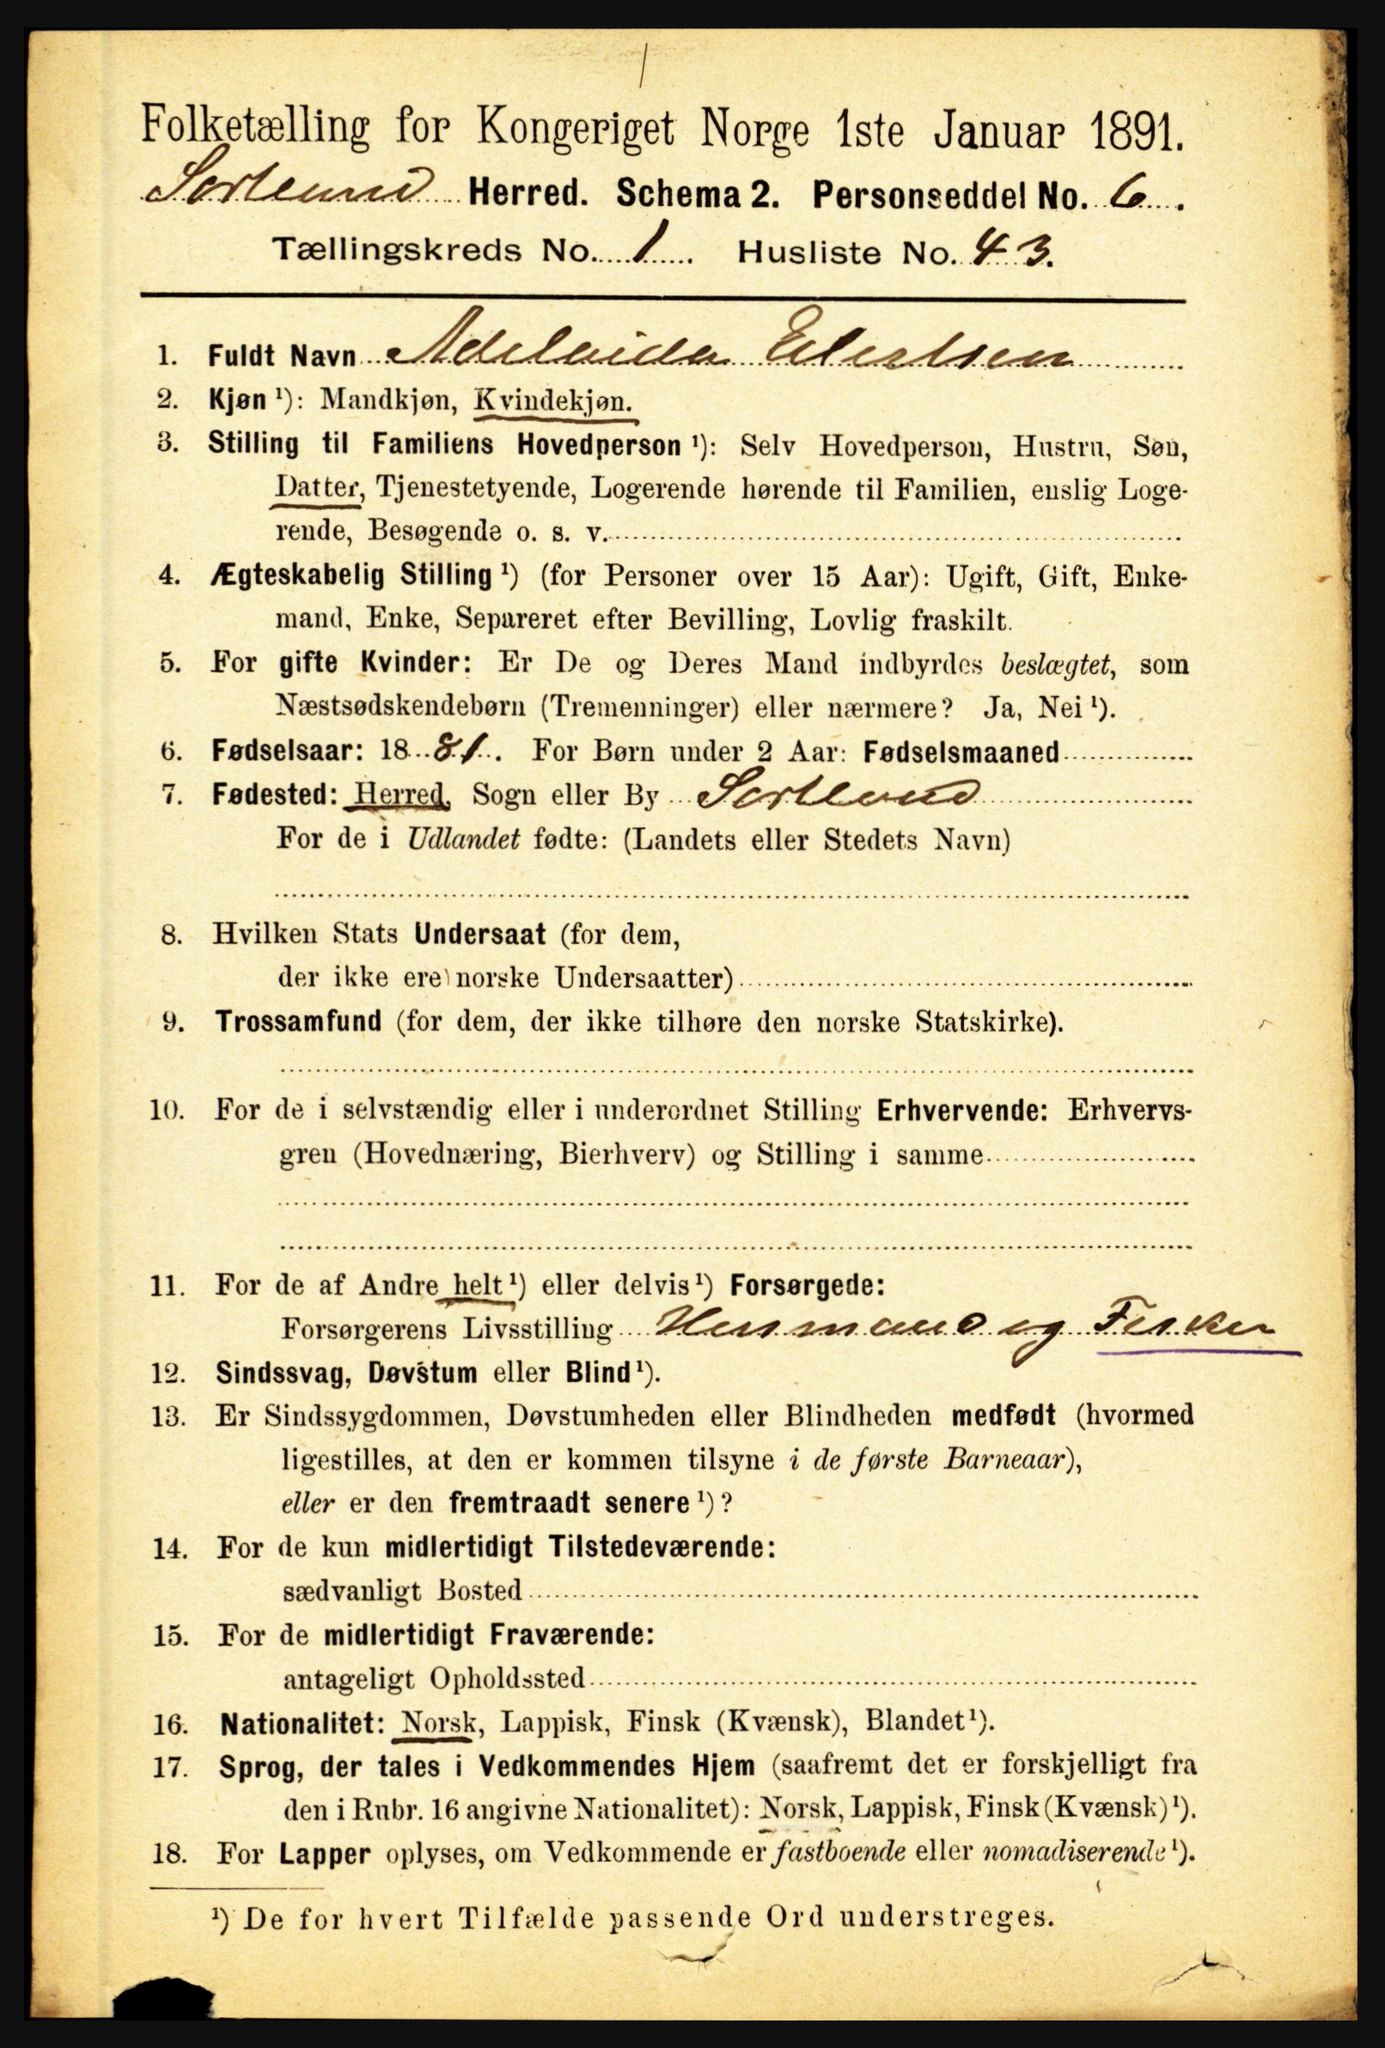 Folketælling for Kongeriget Norge 1ste Januar 1891.
Sortland Herred. Schema 2. Personseddel No. 6.
Tællingskreds No. 1. Husliste No. 43.
1. Fuldt Navn Adelaida Edertsen
2. Kjøn ¹): Mandkjøn, Kvindekjøn.
3. Stilling til Familiens Hovedperson ¹): Selv Hovedperson, Hustru, Søn,
Datter, Tjenestetyende, Logerende hørende til Familien, enslig Loge-
rende, Besøgende o. s. v.
4. Ægteskabelig Stilling ¹) (for Personer over 15 Aar): Ugift, Gift, Enke-
mand, Enke, Separeret efter Bevilling, Lovlig fraskilt.
5. For gifte Kvinder: Er De og Deres Mand indbyrdes beslægtet, som
Næstsødskendebørn (Tremenninger) eller nærmere? Ja, Nei ¹).
6. Fødselsaar: 1881. For Børn under 2 Aar: Fødselsmaaned
7. Fødested: Herred, Sogn eller By Sortland
For de i Udlandet fødte: (Landets eller Stedets Navn)
8. Hvilken Stats Undersaat (for dem,
der ikke ere norske Undersaatter)
9. Trossamfund (for dem, der ikke tilhøre den norske Statskirke).
10. For de i selvstændig eller i underordnet Stilling Erhvervende: Erhvervs-
gren (Hovednæring, Bierhverv) og Stilling i samme
11. For de af Andre helt ¹) eller delvis ¹) Forsørgede:
Forsørgerens Livsstilling Husmand og Fisker
12. Sindssvag, Døvstum eller Blind ¹).
13. Er Sindssygdommen, Døvstumheden eller Blindheden medfødt (hvormed
ligestilles, at den er kommen tilsyne i de første Barneaar),
eller er den fremtraadt senere ¹)?
14. For de kun midlertidigt Tilstedeværende:
sædvanligt Bosted
15. For de midlertidigt Fraværende:
antageligt Opholdssted
16. Nationalitet: Norsk, Lappisk, Finsk (Kvænsk), Blandet ¹).
17. Sprog, der tales i Vedkommendes Hjem (saafremt det er forskjelligt fra
den i Rubr. 16 angivne Nationalitet): Norsk, Lappisk, Finsk (Kvænsk) ¹).
18. For Lapper oplyses, om Vedkommende er fastboende eller nomadiserende ¹).
¹) De for hvert Tilfælde passende Ord understreges.